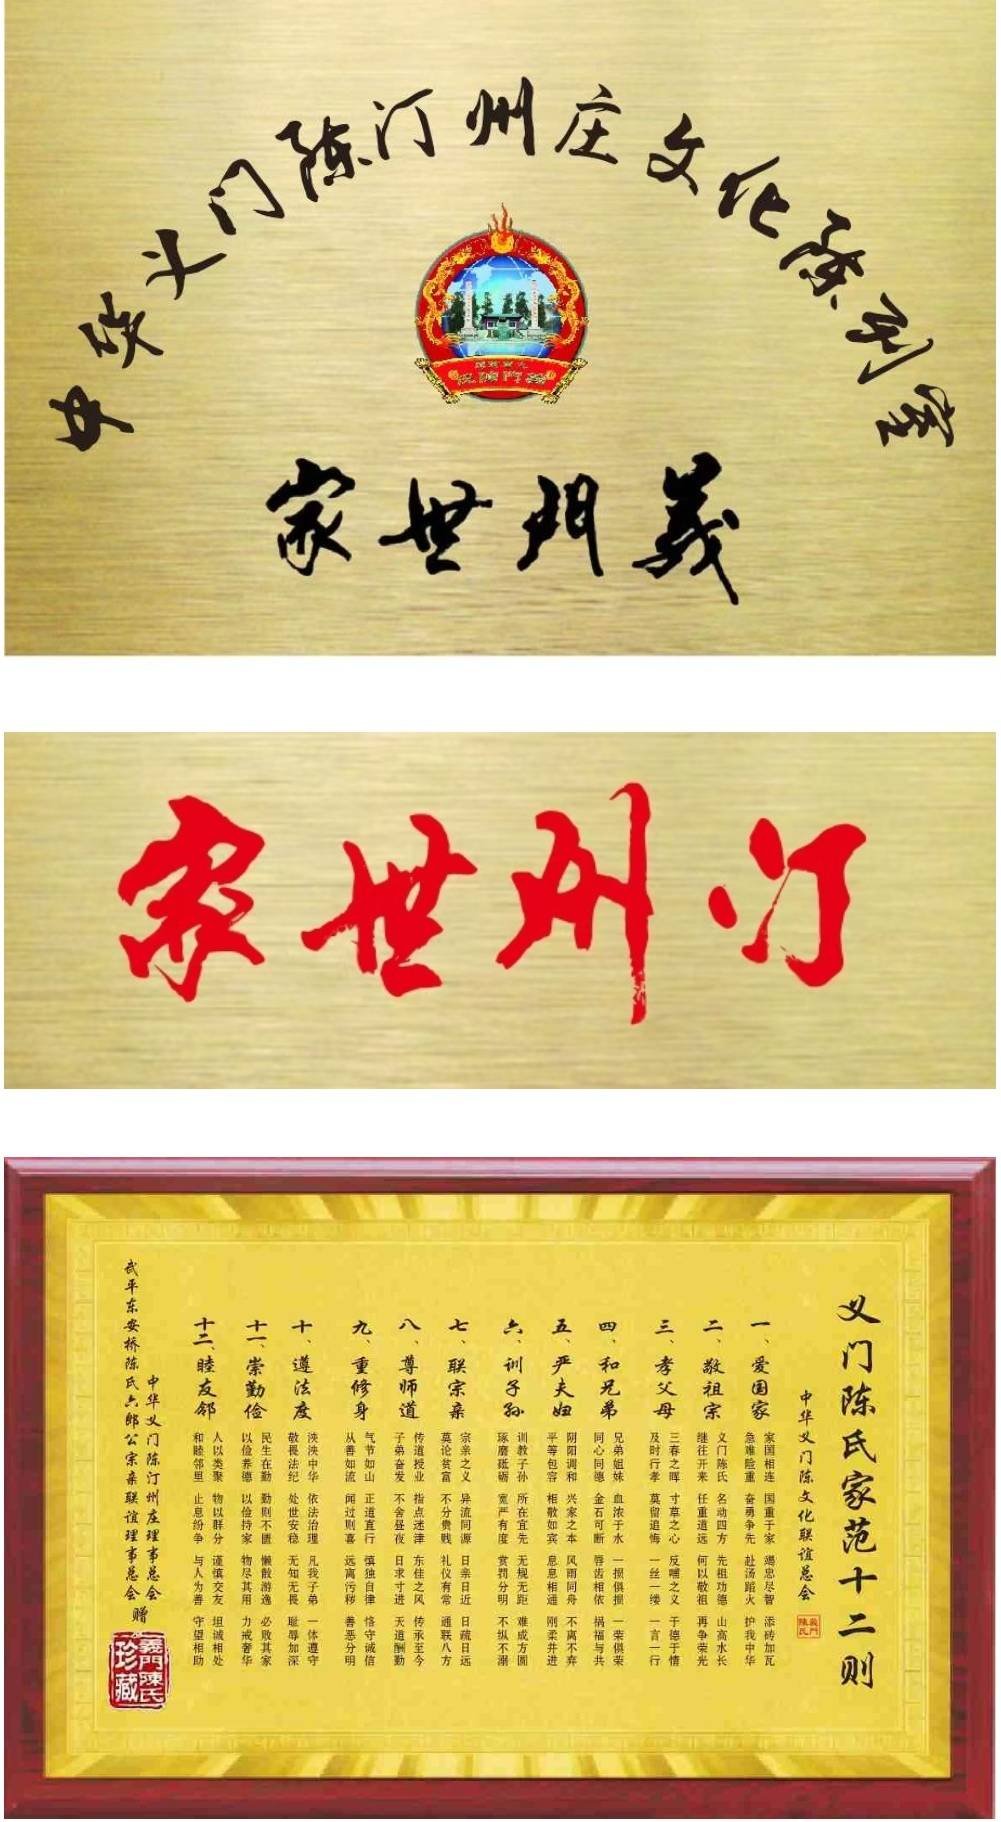 中华义门陈汀州庄文化陈列室
義門世家
汀州世家
义门陈氏家范十二则
中华义门陈文化联谊总会
義門陳氏
一、爱国家
家国相连 国重于家 竭忠尽智 添砖加瓦
急难险重 奋勇争先 赴汤蹈火 护我中华
二、敬祖宗
义门陈氏 名动四方 先祖功德 山高水长
继往开来 任重道远 何以敬祖 再争荣光
三、孝父母
三春之晖 寸草之心 反哺之义 于德于情
及时行孝 莫留追悔 一丝一缕 一言一行
四、和兄弟
兄弟姐妹 血浓于水 一损俱损 一荣俱荣
同心同德 金石可断 唇齿相依 祸福与共
五、严夫妇
阴阳调和 兴家之本 风雨同舟 不离不弃
平等包容 相敬如宾 息息相通 刚柔并进
六、训子孙
训教子孙 所在宜先 无规无距 难成方圆
琢磨砥砺 宽严有度 赏罚分明 不纵不溺
七、联宗亲
宗亲之义 异流同源 日亲日近 日疏日远
莫论贫富 不分贵贱 礼仪有常 通联八方
八、尊师道
传道授业 指点迷津 东佳之风 传承至今
子弟奋发 不舍昼夜 日求寸进 天道酬勤
九、重修身
气节如山 正道直行 慎独自律 恪守诚信
从善如流 闻过则喜 远离污秽 善恶分明
十、遵法度
泱泱中华 依法治理 凡我子弟 一体遵守
敬畏法纪 处世安稳 无知无畏 耻辱加深
十一、崇勤俭
民生在勤 勤则不匮 懒散游逸 必败其家
以俭养德 以俭持家 物尽其用 力戒奢华
十二、睦友邻
人以类聚 物以群分 谨慎交友 坦诚相处
和睦邻里 止息纷争 与人为善 守望相助
中华义门陈汀州庄理事总会
武平东安桥陈氏六郎公宗亲联谊理事总会 赠
義門陳氏
珍藏